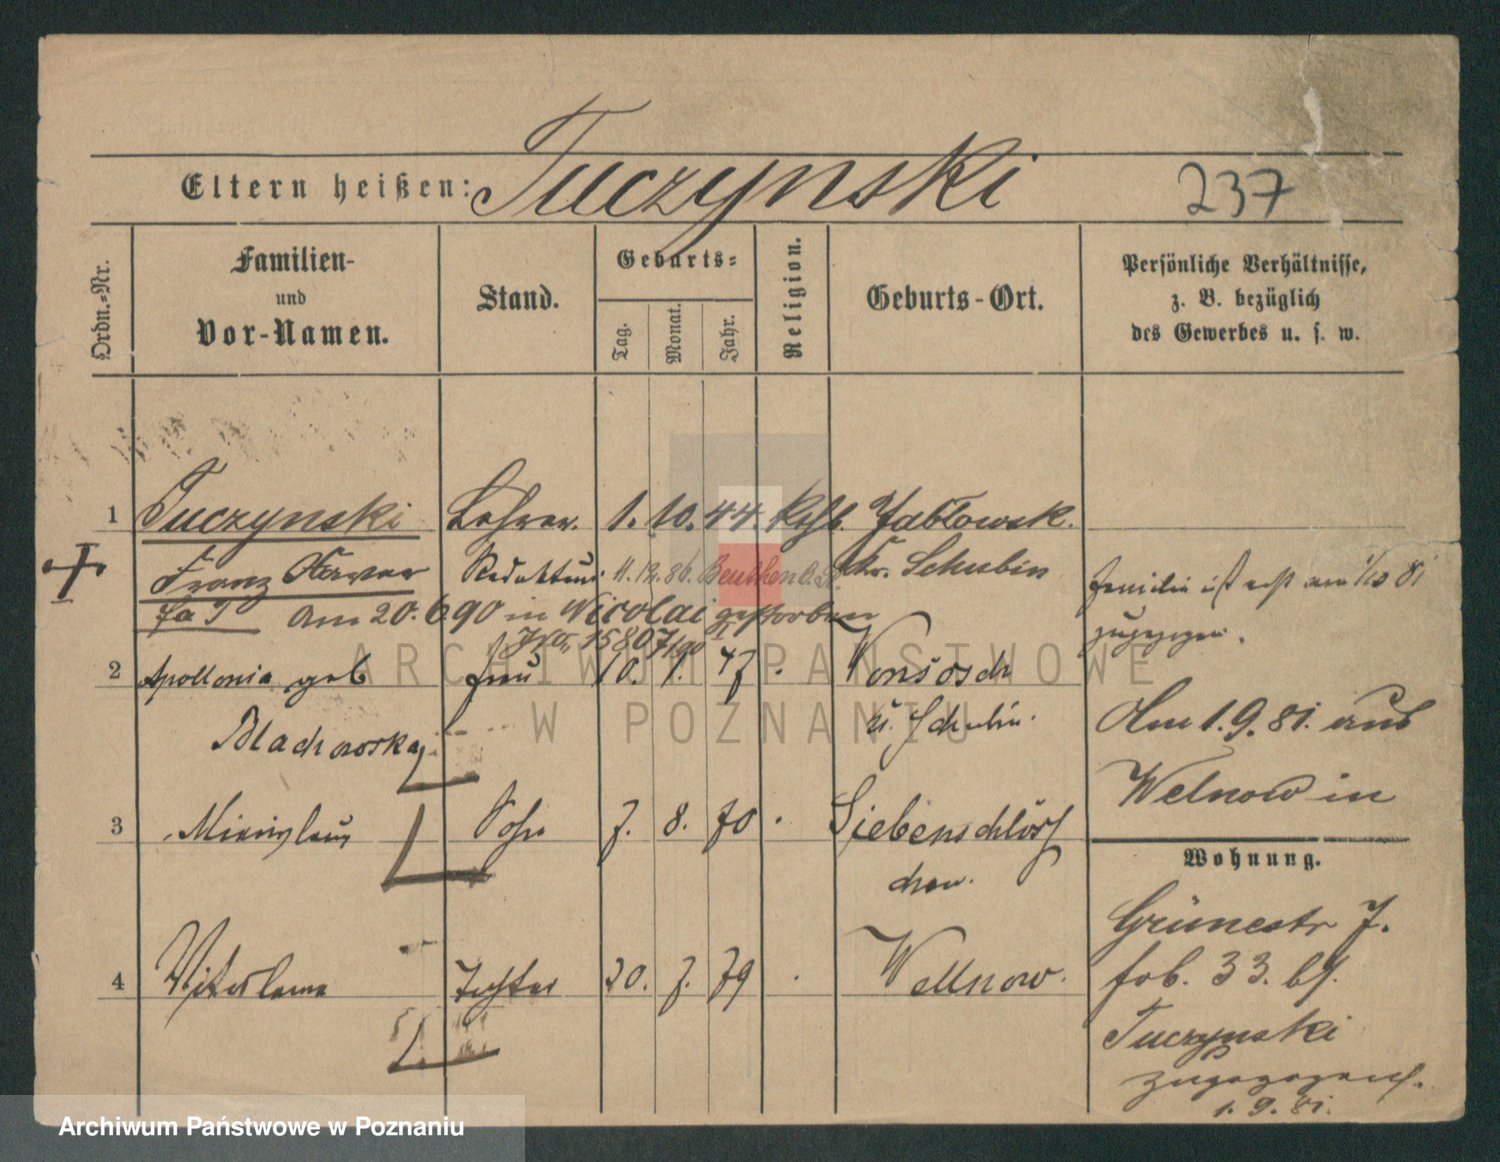 Eltern heißen: Tuczynski 237
Ordn.-Nr.
Familien-
und
Vor-Namen.
Stand.
Geburts-
Tag.
Monat.
Jahr.
Religion.
Geburts-Ort.
Persönliche Verhältnisse,
z. B. bezüglich
des Gewerbes u. s. w.
1 Tuczynski Lehrer. 1. 10. 44. Kath. Jablowsk.
Franz Xaver Redakteur 11.12.86. Beuthen O.S. Kr. Schubin
Familie ist erst am 1/10 81
zugezogen.
am 20. 6 90 in Nicolai gestorben
15807/90
2 Apollonia geb Frau 10. 1. 47
Blachowska
Kr. Schubin.
Am 1. 9. 81. aus
Welnow in
3 Sohn 7. 8. 70 Siebenschlöss
chen.
Wohnung.
4 Tochter 20. 7. 79 Wellnow.
Grünestr 7.
33. bei
Tuczynski
zugezogen.
1. 9. 81.
ARCHIWUM PAŃSTWOWE
W POZNANIU
Archiwum Państwowe w Poznaniu